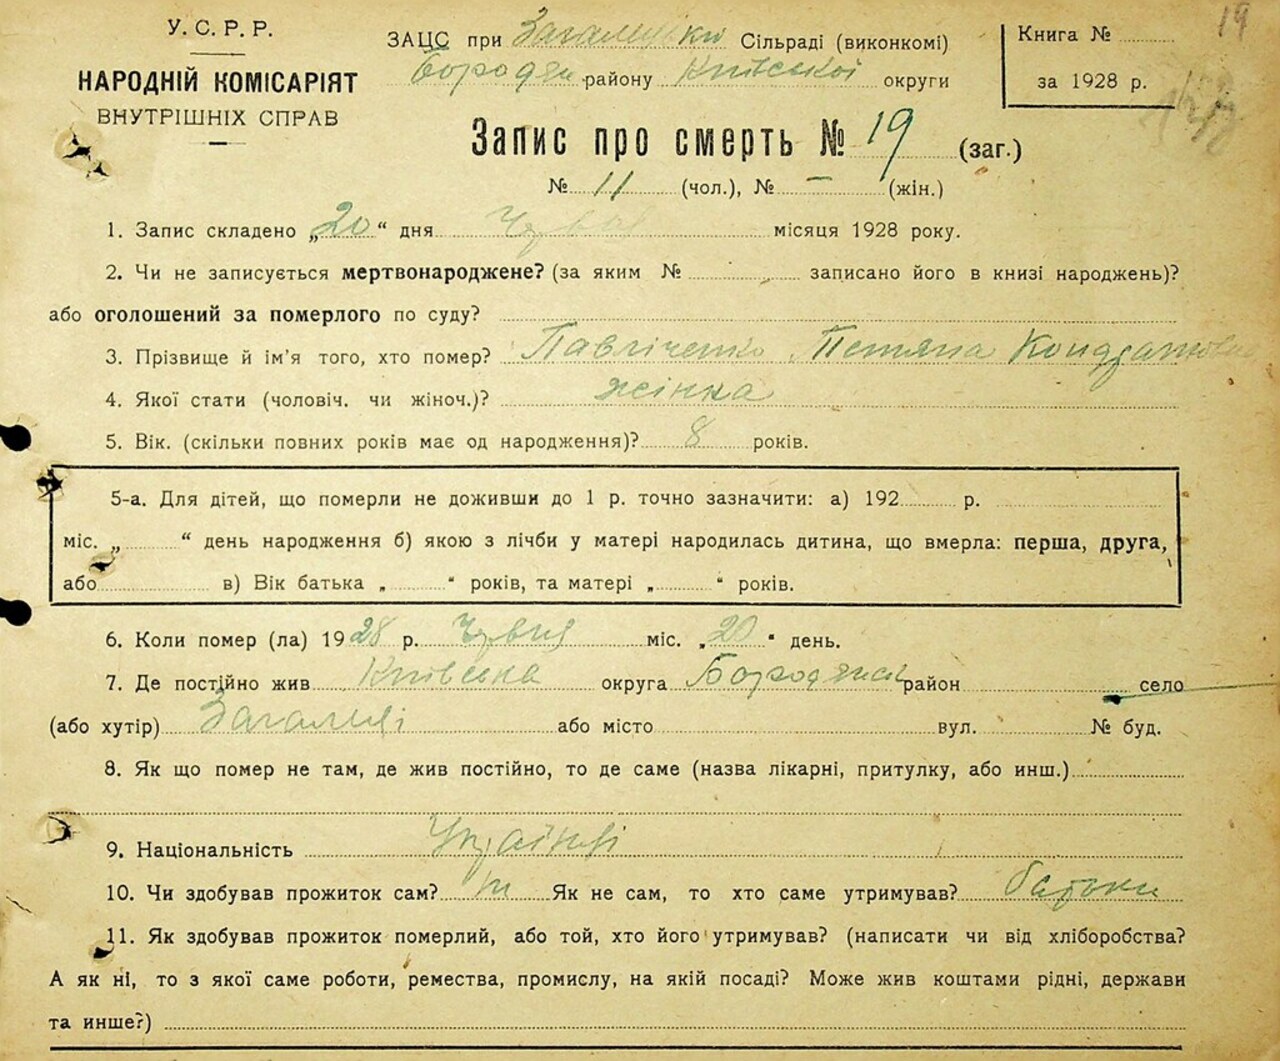 19
У. С. Р. Р.
НАРОДНІЙ КОМІСАРІЯТ
ВНУТРІШНІХ СПРАВ
ЗАЦС при Сільраді (виконкомі)
Бородян. району Київської округи
Книга №
за 1928 р.
Запис про смерть № 19 (заг.)
№ 11 (чол.), № – (жін.)
1. Запис складено „20“ дня Червня місяця 1928 року.
2. Чи не записується мертвонароджене? (за яким № записано його в книзі народжень)?
або оголошений за померлого по суду?
3. Прізвище й ім'я того, хто помер? Павліченко
4. Якої стати (чоловіч. чи жіноч.)? жінка
5. Вік. (скільки повних років має од народження)? 8 років.
5-а. Для дітей, що померли не доживши до 1 р. точно зазначити: а) 192 р.
міс. „ “ день народження б) якою з лічби у матері народилась дитина, що вмерла: перша, друга,
або в) Вік батька „ “ років, та матері „ “ років.
6. Коли помер (ла) 1928 р. Червня міс. „20“ день.
7. Де постійно жив Київська округа Бородянськ район село
(або хутір) Загальці або місто вул. № буд.
8. Як що помер не там, де жив постійно, то де саме (назва лікарні, притулку, або инш.)
9. Національність Українці
10. Чи здобував прожиток сам? ні Як не сам, то хто саме утримував? батьки
11. Як здобував прожиток померлий, або той, хто його утримував? (написати чи від хліборобства?
А як ні, то з якої саме роботи, ремества, промислу, на якій посаді? Може жив коштами рідні, держави
та инше?)